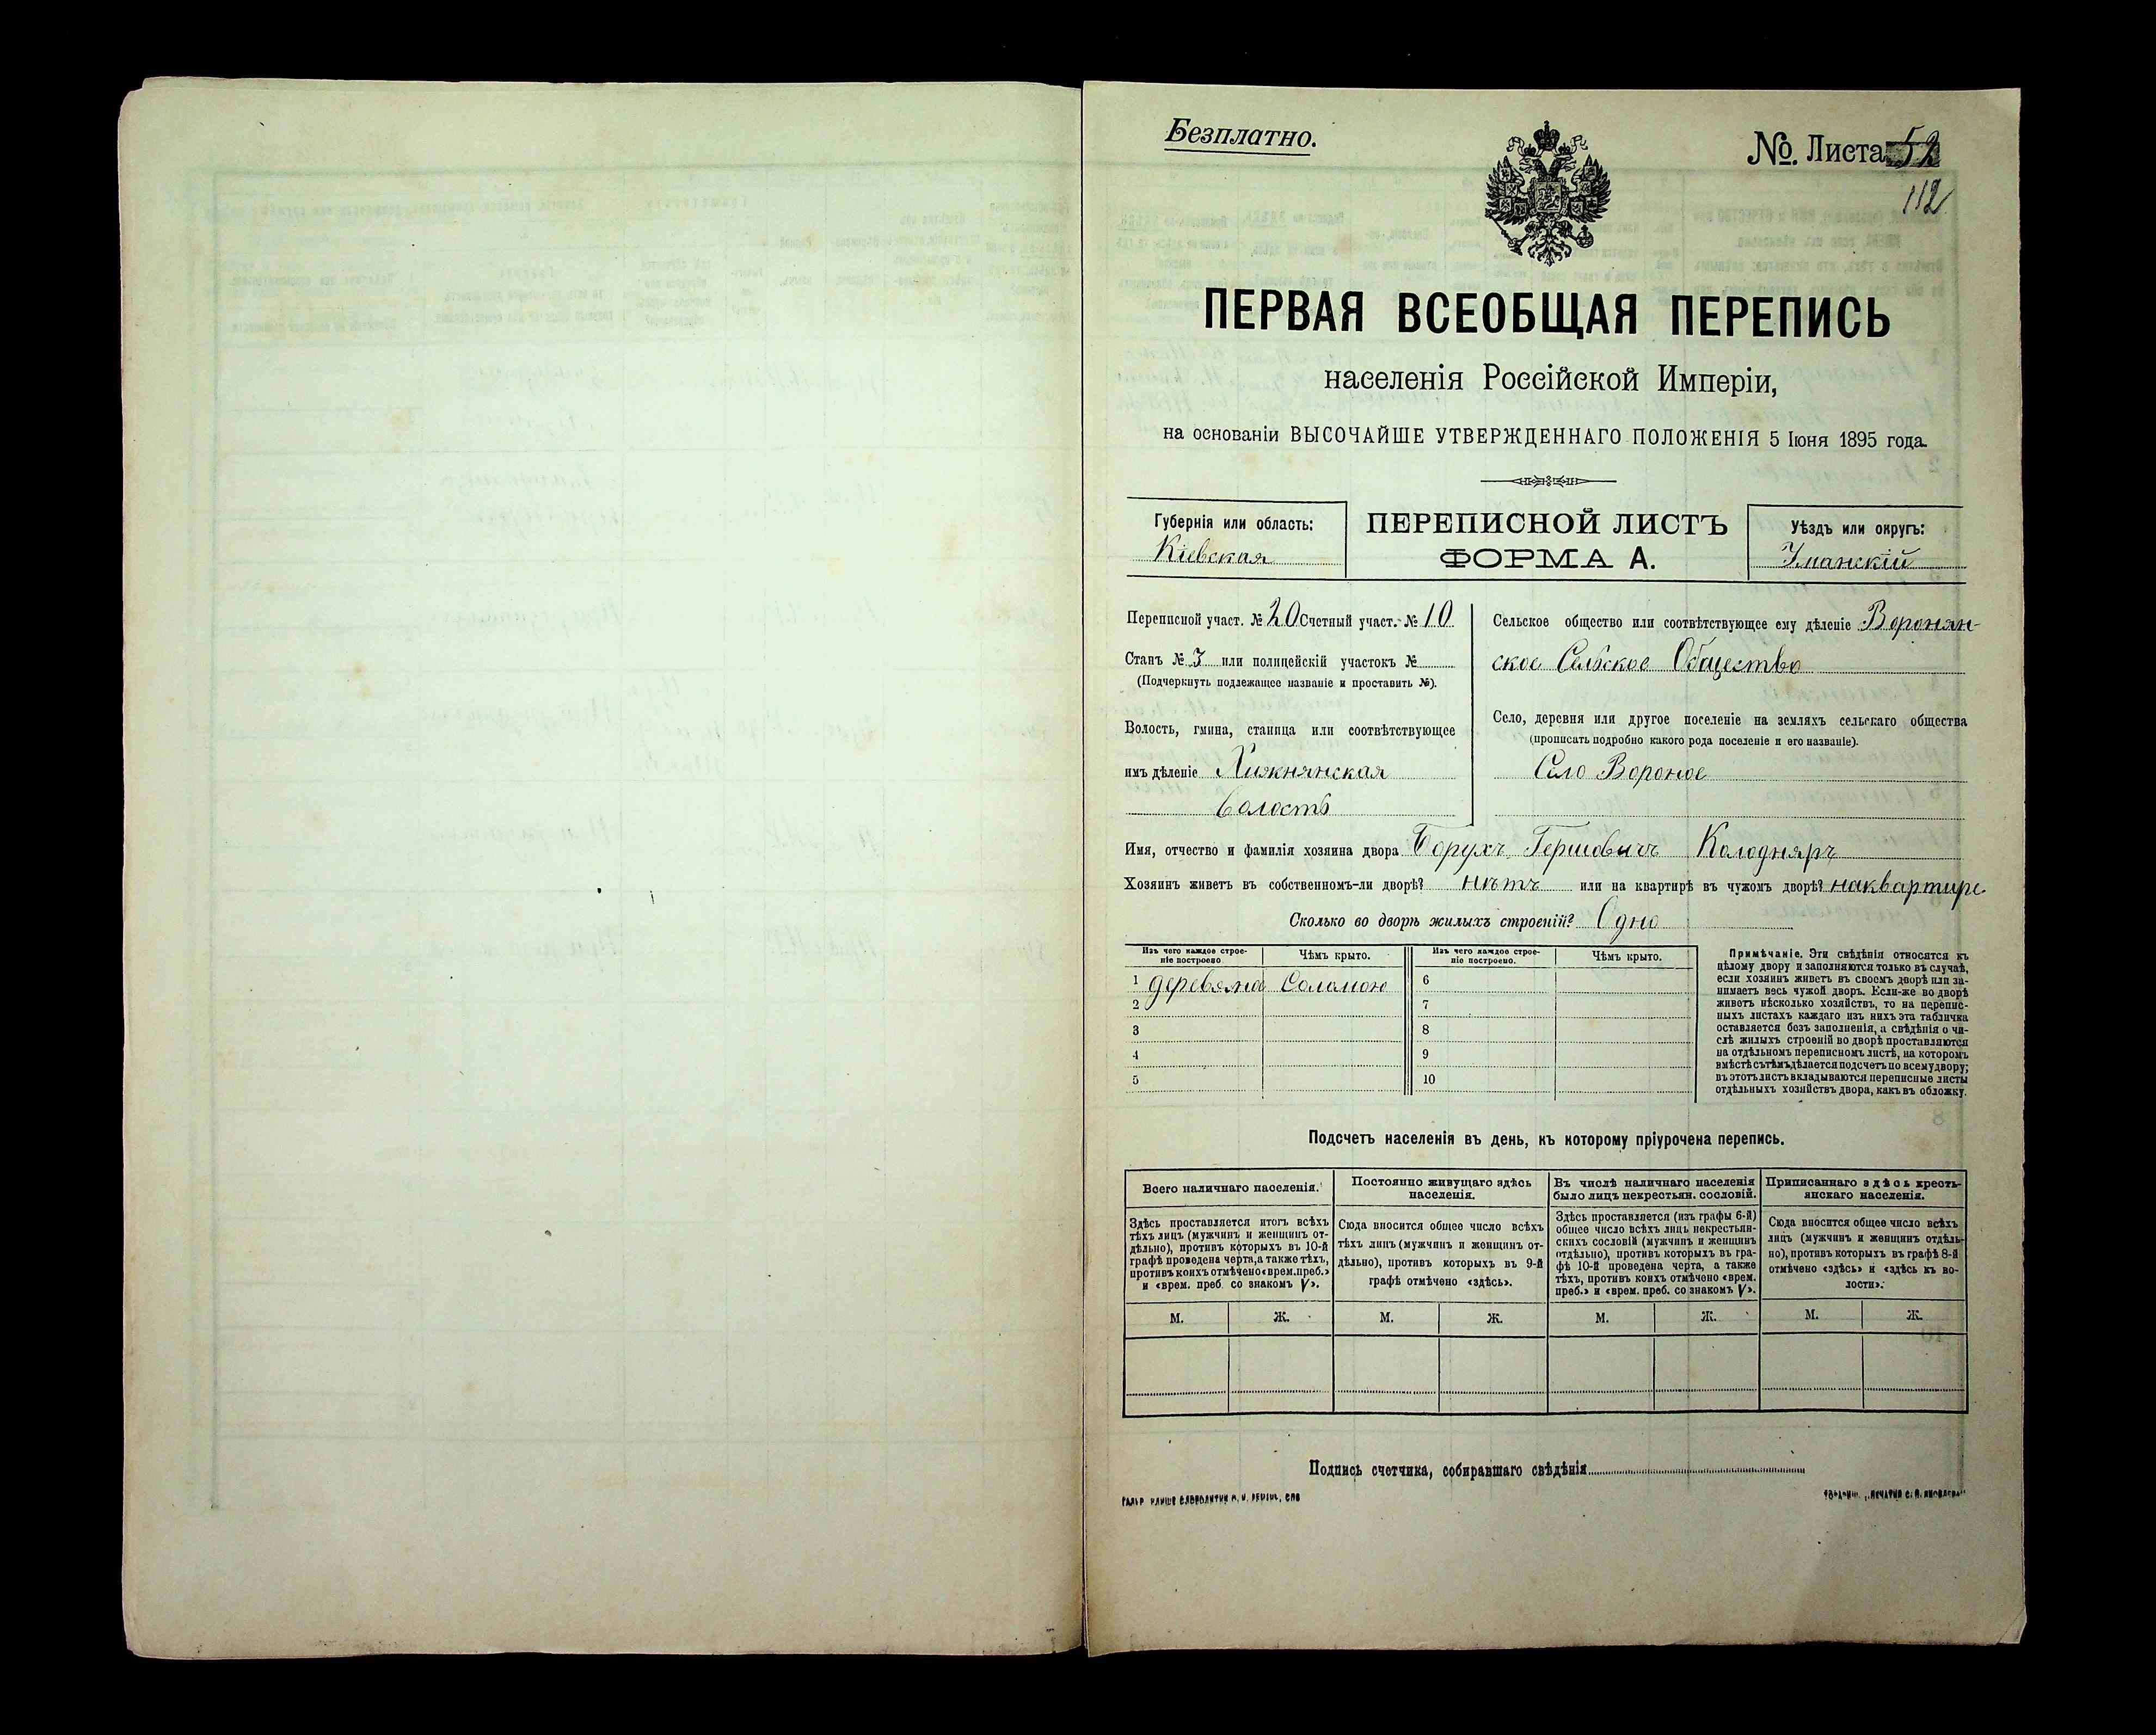 Безплатно.
№. Листа 52
112
ПЕРВАЯ ВСЕОБЩАЯ ПЕРЕПИСЬ
населенія Россійской Имперіи,
на основаніи ВЫСОЧАЙШЕ УТВЕРЖДЕННАГО ПОЛОЖЕНІЯ 5 Іюня 1895 года.
Губернія или область:
Кіевская
ПЕРЕПИСНОЙ ЛИСТЪ
ФОРМА А.
Уѣздъ или округъ:
Уманскій
Переписной участ. № 20 Счетный участ. № 10
Станъ № 3 или полицейскій участокъ №
(Подчеркнуть подлежащее названіе и проставить №).
Волость, гмина, станица или соотвѣтствующее
имъ дѣленіе Хижнянская
волость
Сельское общество или соотвѣтствующее ему дѣленіе Воронян-
ское Сельское Общество
Село, деревня или другое поселеніе на земляхъ сельскаго общества
(прописать подробно какого рода поселеніе и его названіе).
Село Вороное
Имя, отчество и фамилія хозяина двора Борухъ Гершовичъ Колодняръ
Хозяинъ живетъ въ собственномъ-ли дворѣ? нѣтъ или на квартирѣ въ чужомъ дворѣ? наквартире
Сколько во дворѣ жилыхъ строеній? Одно
Изъ чего каждое строе-
ніе построено
Чѣмъ крыто.
Изъ чего каждое строе-
ніе построено.
Чѣмъ крыто.
1 деревяное Соломою
2
3
4
5
6
7
8
9
10
Примѣчаніе. Эти свѣдѣнія относятся къ
цѣлому двору и заполняются только въ случаѣ,
если хозяинъ живетъ въ своемъ дворѣ или за-
нимаетъ весь чужой дворъ. Если-же во дворѣ
живетъ нѣсколько хозяйствъ, то на перепис-
ныхъ листахъ каждаго изъ нихъ эта табличка
оставляется безъ заполненія, а свѣдѣнія о чи-
слѣ жилыхъ строеній во дворѣ проставляются
на отдѣльномъ переписномъ листѣ, на которомъ
вмѣстѣ съ тѣмъ дѣлается подсчетъ по всему двору;
въ этотъ листъ вкладываются переписные листы
отдѣльныхъ хозяйствъ двора, какъ въ обложку.
Подсчетъ населенія въ день, къ которому пріурочена перепись.
Всего наличнаго населенія.
Здѣсь проставляется итогъ всѣхъ
тѣхъ лицъ (мужчинъ и женщинъ от-
дѣльно), противъ которыхъ въ 10-й
графѣ проведена черта, а также тѣхъ,
противъ коихъ отмѣчено «врем. преб.»
и «врем. преб. со знакомъ V».
Постоянно живущаго здѣсь
населенія.
Сюда вносится общее число всѣхъ
тѣхъ лицъ (мужчинъ и женщинъ от-
дѣльно), противъ которыхъ въ 9-й
графѣ отмѣчено «здѣсь».
Въ числѣ наличнаго населенія
было лицъ некрестьян. сословій.
Здѣсь проставляется (изъ графы 6-й)
общее число всѣхъ лицъ некрестьян-
скихъ сословій (мужчинъ и женщинъ
отдѣльно), противъ которыхъ въ гра-
фѣ 10-й проведена черта, а также
тѣхъ, противъ коихъ отмѣчено «врем.
преб.» и «врем. преб. со знакомъ V».
Приписаннаго здѣсь кресть-
янскаго населенія.
Сюда вносится общее число всѣхъ
лицъ (мужчинъ и женщинъ отдѣль-
но), противъ которыхъ въ графѣ 8-й
отмѣчено «здѣсь» и «здѣсь къ во-
лости».
М. Ж. М. Ж. М. Ж. М. Ж.
Подпись счетчика, собиравшаго свѣдѣнія